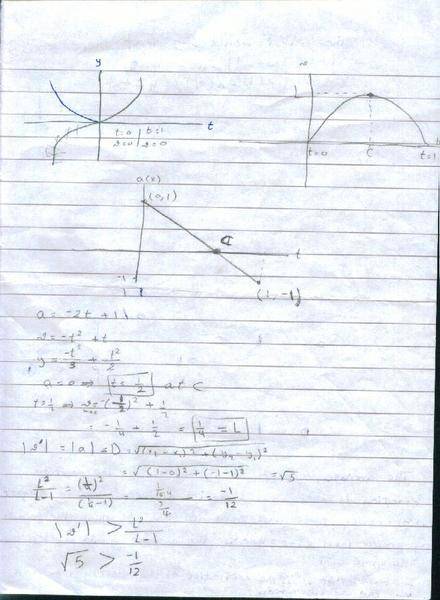 y
t
t=0 | t=1
v=0 | v=0
L
t=0 C t=1
a(x)
(0,1)
C
t
-1
(1,-1)
a = -2t + 1
v = -t² + t
y = -t³/3 + t²/2
a = 0 ⇒ t = 1/2 at C
= -1/4 + 1/2 = 1/4 = L
|v'| = |a| = D = √(x₂-x₁)² + (y₂-y₁)²
= √(1-0)² + (-1-1)² = √5
L²/L-1 = (1/4)²/(1/4-1) = = -1/12
|v'| > L²/L-1
√5 > -1/12